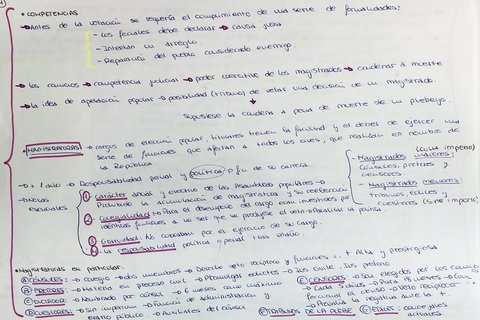 • COMPETENCIAS
→ Antes de la votación se requería el cumplimiento de una serie de formalidades:
- Los feciales debe declarar → causa justa
- Intentan un arreglo
- Reparación del pueblo considerado enemigo
→ los comicios → competencia judicial → poder coercitivo de los magistrados → condenar a muerte
→ la idea de apelación popular → posibilidad (tribuno) de vetar una decisión de un magistrado.
supusiese la condena a pena de muerte de un plebeyo.
• MAGISTRATURAS → cargos de elección popular, titulares tienen la facultad y el deber de ejercer una
serie de funciones que afectan a todos los cives, que realizan en nombre de
la República
→ 1 año → Responsabilidad penal y política → fin de su carrera
→ Notas esenciales
1. carácter anual y electivo de las Asambleas populares →
Prohibido la acumulación de magistraturas y su reelección
2. Colegialidad → Para el desempeño del cargo eran investidos por
idénticas funciones a no ser que se produjese el veto → Paraliza la
3. Gratuidad: No cobraban por el ejercicio de su cargo.
4. la responsabilidad política o penal tras un año.
- Magistrados mayores: (cum imperio)
Cónsules, pretores y
censores
- Magistrados menores:
tribunos, ediles y
cuestores (sine imperio)
• Magistraturas en particular.
A) CONSULES: → colegio → dos miembros → Derecho veto recíproco y funciones = + Alta y prestigiosa
B) PRETORES: → Materia en proceso civil → Promulgar edictos → Ius Civile, Ius pretorio
C) DICTADOR: → Nombrado por cónsul → 6 meses como máximo
D) CUESTORES: → Sin imperium → Función de administración y
erario público → Auxiliares del cónsul
E) CENSORES: → Son elegidos por los comicios
→ Cada 5 años → Para 18 meses →
formaban el censo → Veto recíproco
F) TRIBUNOS DE LA PLEBE
G) EDILES: curules